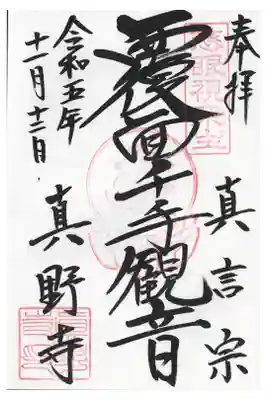 奉拝
慈眼視衆生
真言宗
覆面千手観音
令和五年
十一月十二日
真野寺